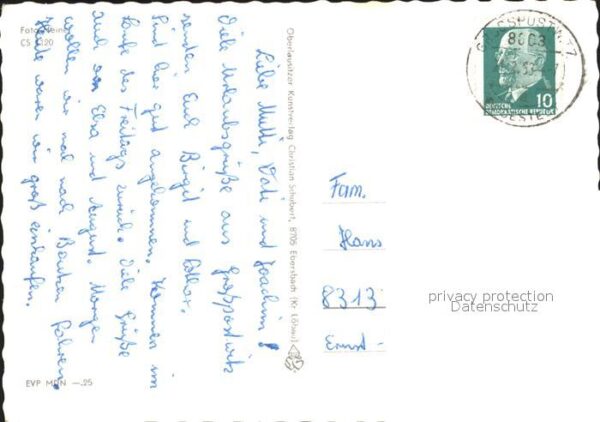 Foto:
CS 1120
Liebe Mutti, Vati und Joachim!
Viele Urlaubsgrüße aus Großpostwitz
senden Euch Birgit und Lothar.
Sind hier gut angekommen. Kommen im
Laufe des Freitags zurück. Viele Grüße
auch von Elsa und August. Morgen
wollen wir mal nach Bautzen fahren.
Heute waren wir groß einkaufen.
EVP MDN —.25
Oberlausitzer Kunstverlag Christian Schubert, 8705 Ebersbach (Kr. Löbau)
8603
10
DEUTSCHE
DEMOKRATISCHE REPUBLIK
Fam.
Hans
8313
Ernst-
privacy protection
Datenschutz